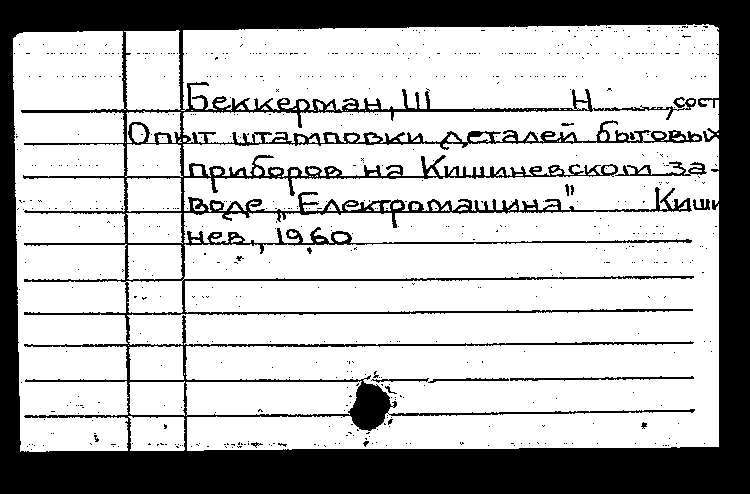 Беккерман, Ш Н , сост
Опыт штамповки деталей бытовых
приборов на Кишиневском за-
воде „Електромашина". Киши
нев., 1960